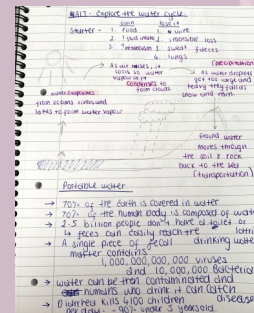 WALT - Explore the water cycle
gain lose it
Starter - 1. Food 1. urine
2. fluid intake 2. insensible loss
3. metabolism 3. sweat faeces
4. lungs
(precipitation)
As air rises, it
cools so water
vapour
condenses to
form clouds
As water droplets
get too large and
heavy they fall as
snow and rain.
water evaporates
from oceans rivers and
lakes to form water vapour
Ground water
moves through
the soil & rock
back to the sea
(transportation)
Portable water
→ 70% of the Earth is covered in water
→ 70% of the human body is composed of water
→ 2.5 billion people don't have a toilet or
latrine
→ feces can easily reach the drinking water
→ A single piece of fecal
matter contains
1,000,000,000,000 viruses
and 10,000,000 bacteria
→ water can be then contaminated and
humans who drink it can catch
disease
→ Diarrhea kills 4100 children
per day - 90% under 5 years old.